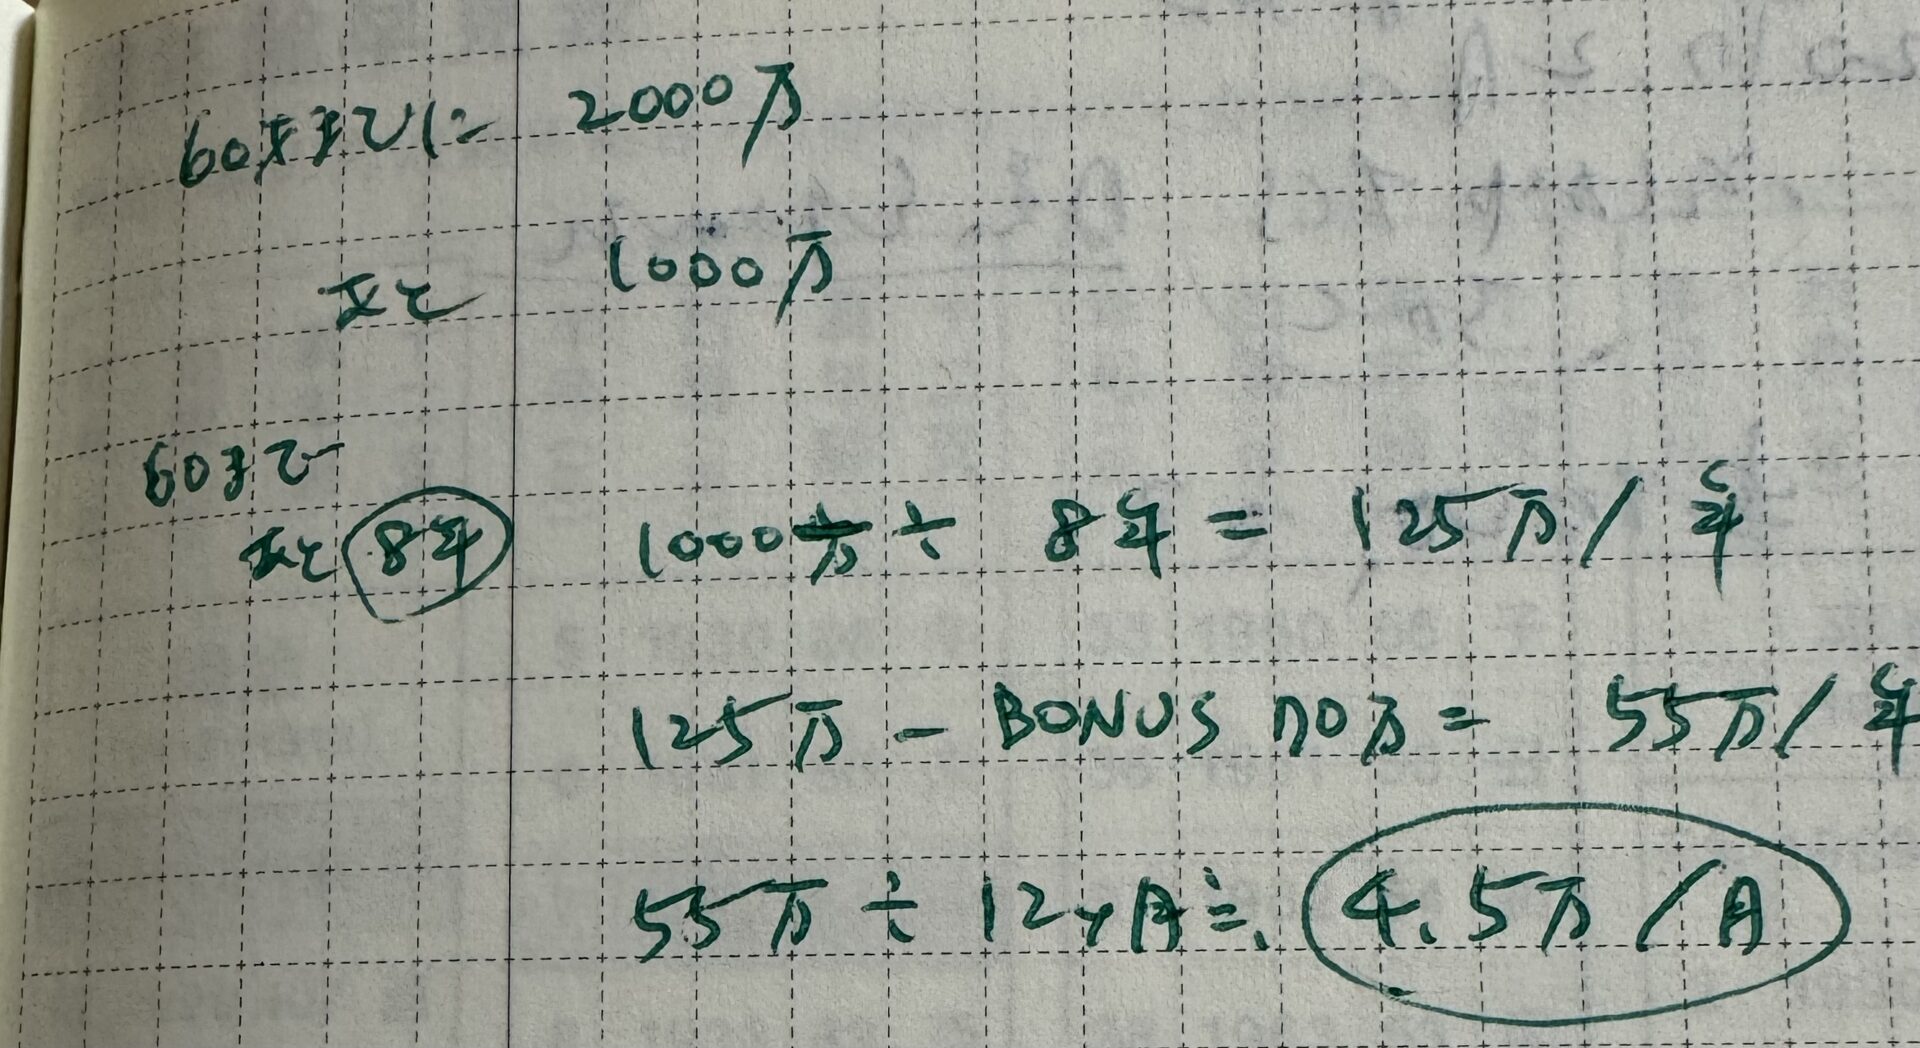 60才までに 2000万
あと 1000万
60まで
あと 8年 1000万 ÷ 8年 = 125万/年
125万 - BONUS 70万 = 55万/年
55万 ÷ 12ヶ月 ≒ 4.5万/月